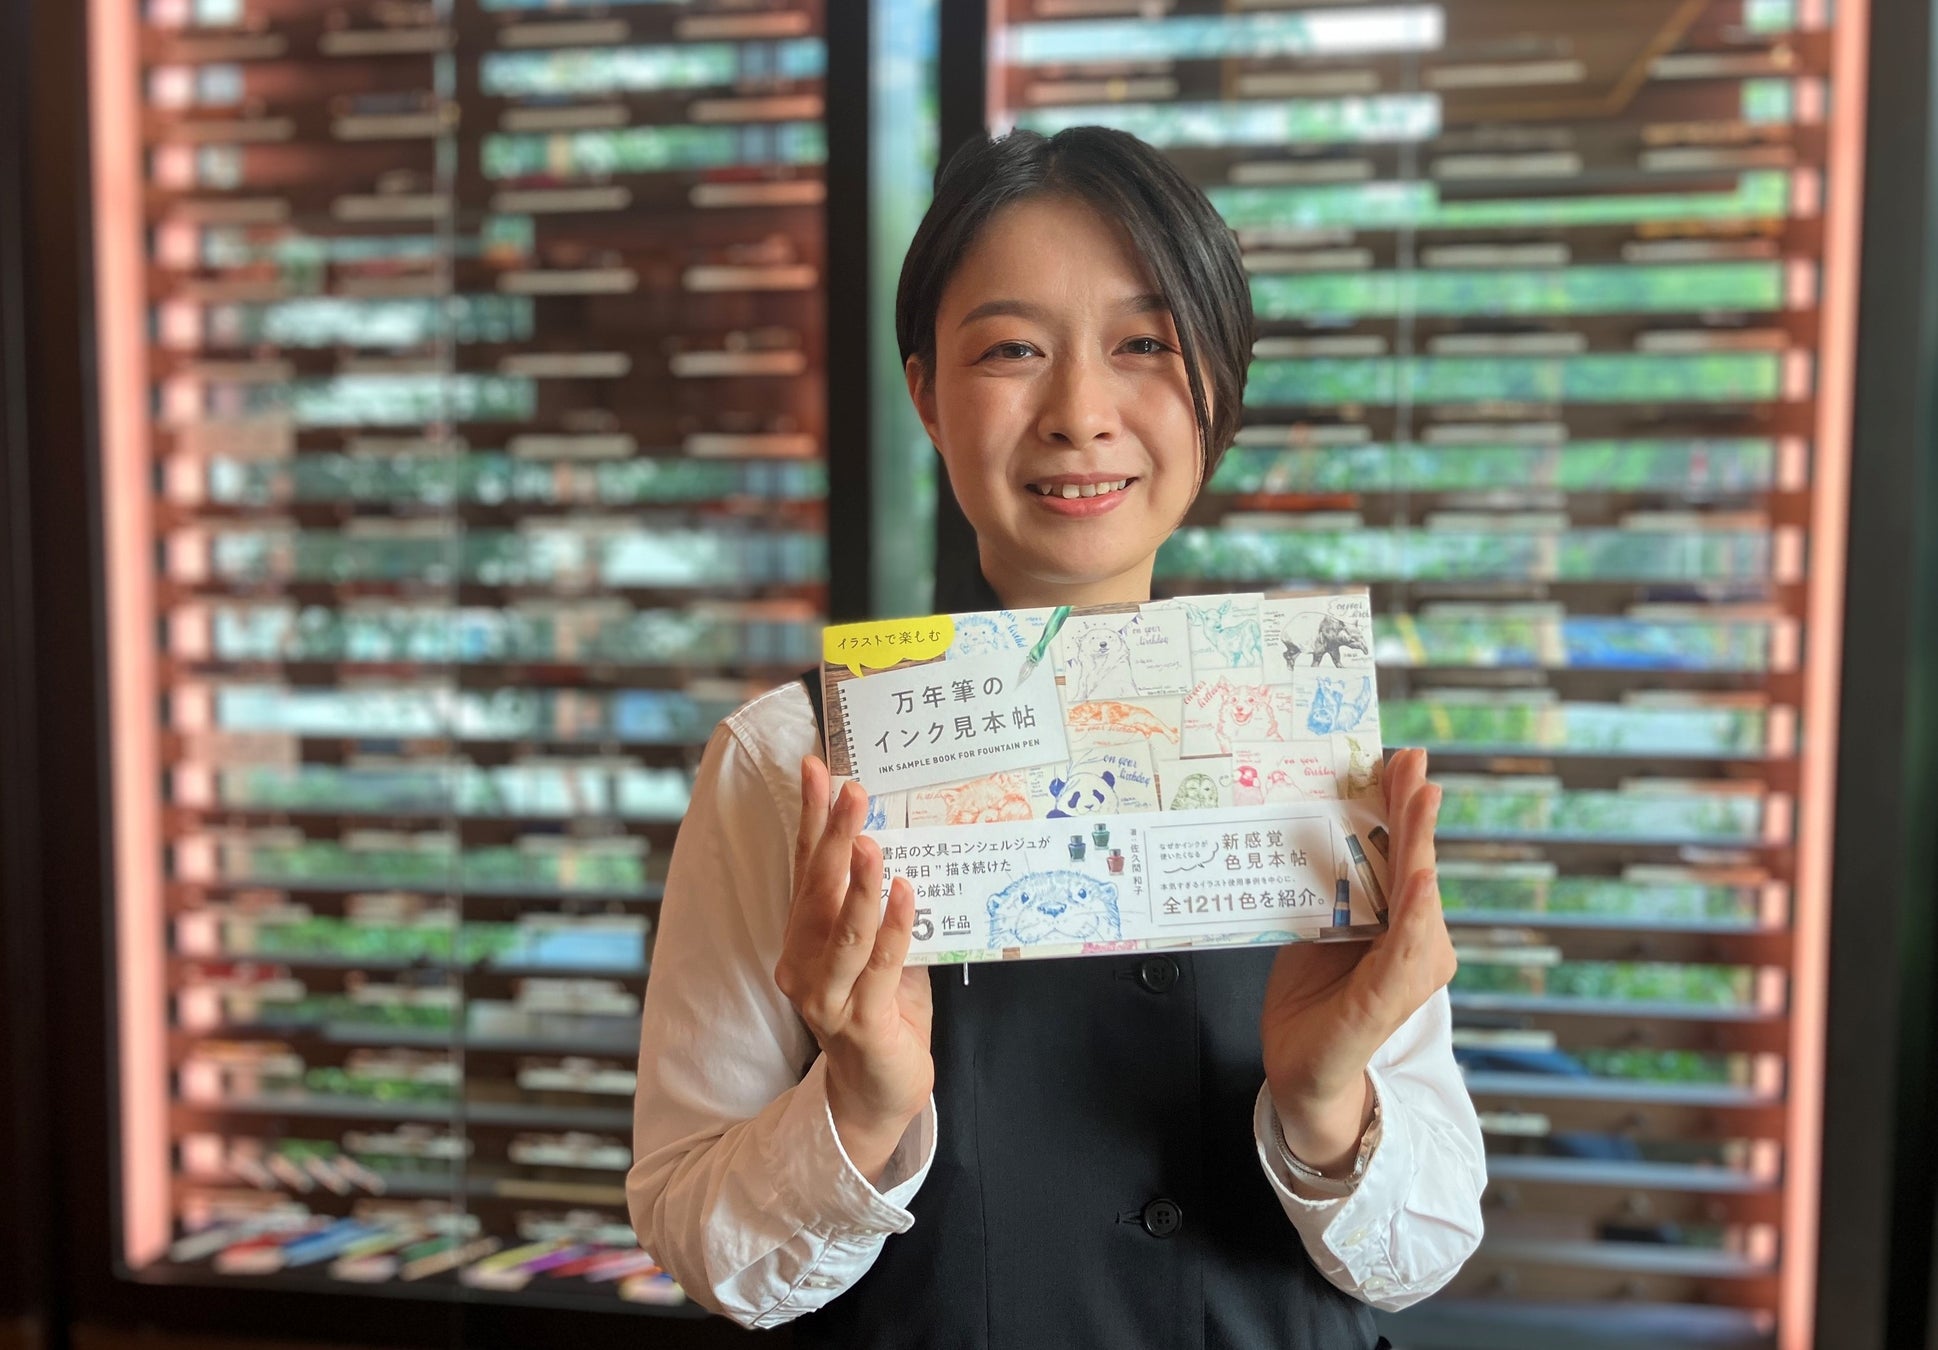 イラストで楽しむ
万年筆の
インク見本帖
INK SAMPLE BOOK FOR FOUNTAIN PEN
on your
birthday
on your
birthday
on your
birthday
書店の文具コンシェルジュが
間“毎日”描き続けた
ら厳選！
5 作品
著・佐久間 和子
なぜかインクが
使いたくなる
新感覚
色見本帖
本気すぎるイラスト使用事例を中心に、
全1211色を紹介。